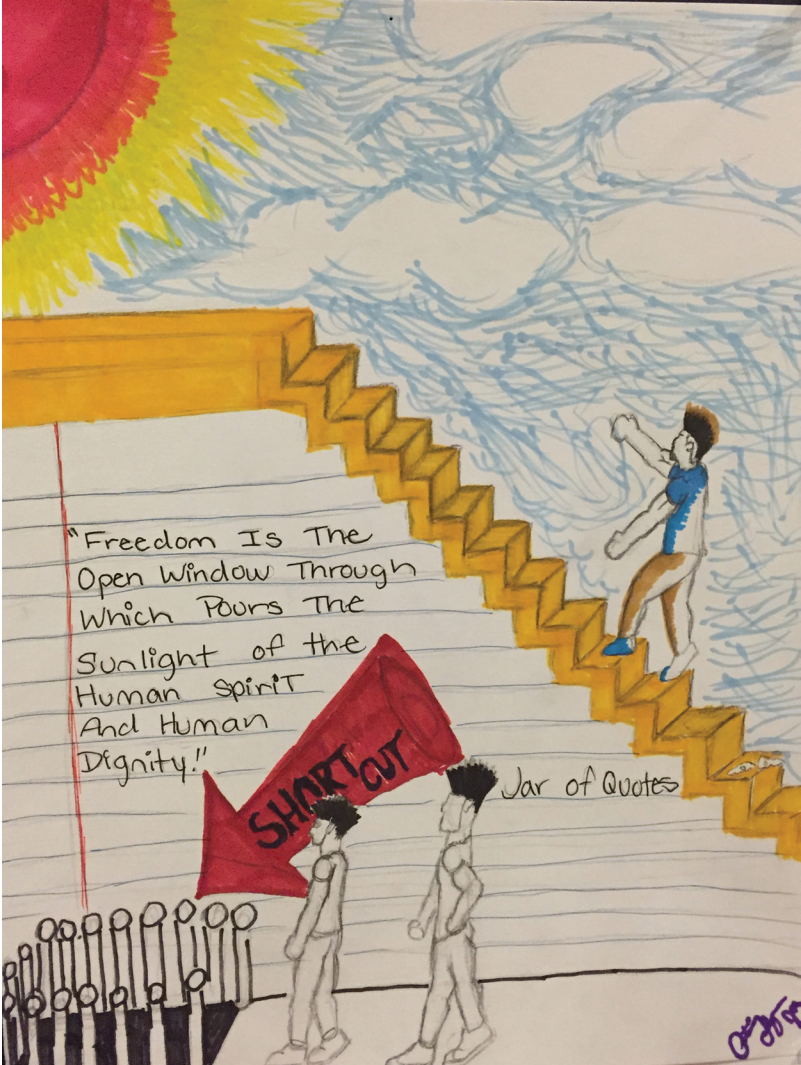 "Freedom Is The
Open Window Through
Which Pours The
Sunlight of the
Human Spirit
And Human
Dignity!"
SHORT CUT
Jar of Quotes